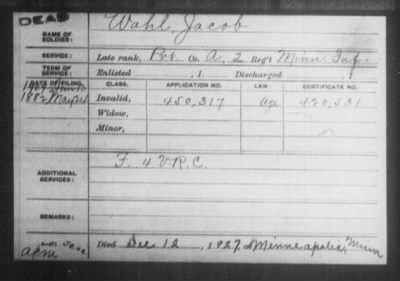 DEAD
NAME OF SOLDIER: Wahl, Jacob
SERVICE: Late rank, Pvt. Co. A, 2 Reg't Minn Inf.
TERM OF SERVICE: Enlisted , 1 Discharged , 1
DATE OF FILING. CLASS. APPLICATION NO. LAW. CERTIFICATE NO.
1882 May 31 Invalid, 450,317 Age 420,531
Widow,
Minor,
ADDITIONAL SERVICES: F. 4 V.R.C.
REMARKS:
Died Dec 12, 1927, Minneapolis, Minn